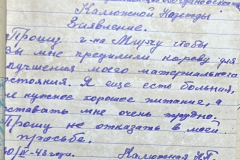 Калюжной Надежды
Заявление.
Прошу г-на Мучку чтобы
вы мне предложили корову для
улучшения моего материального
состояния. Я еще есть больная,
не нужнее хорошее питание, а
доставать мне очень трудно.
Прошу не отказать в моей
просьбе.
Калюжная Н.